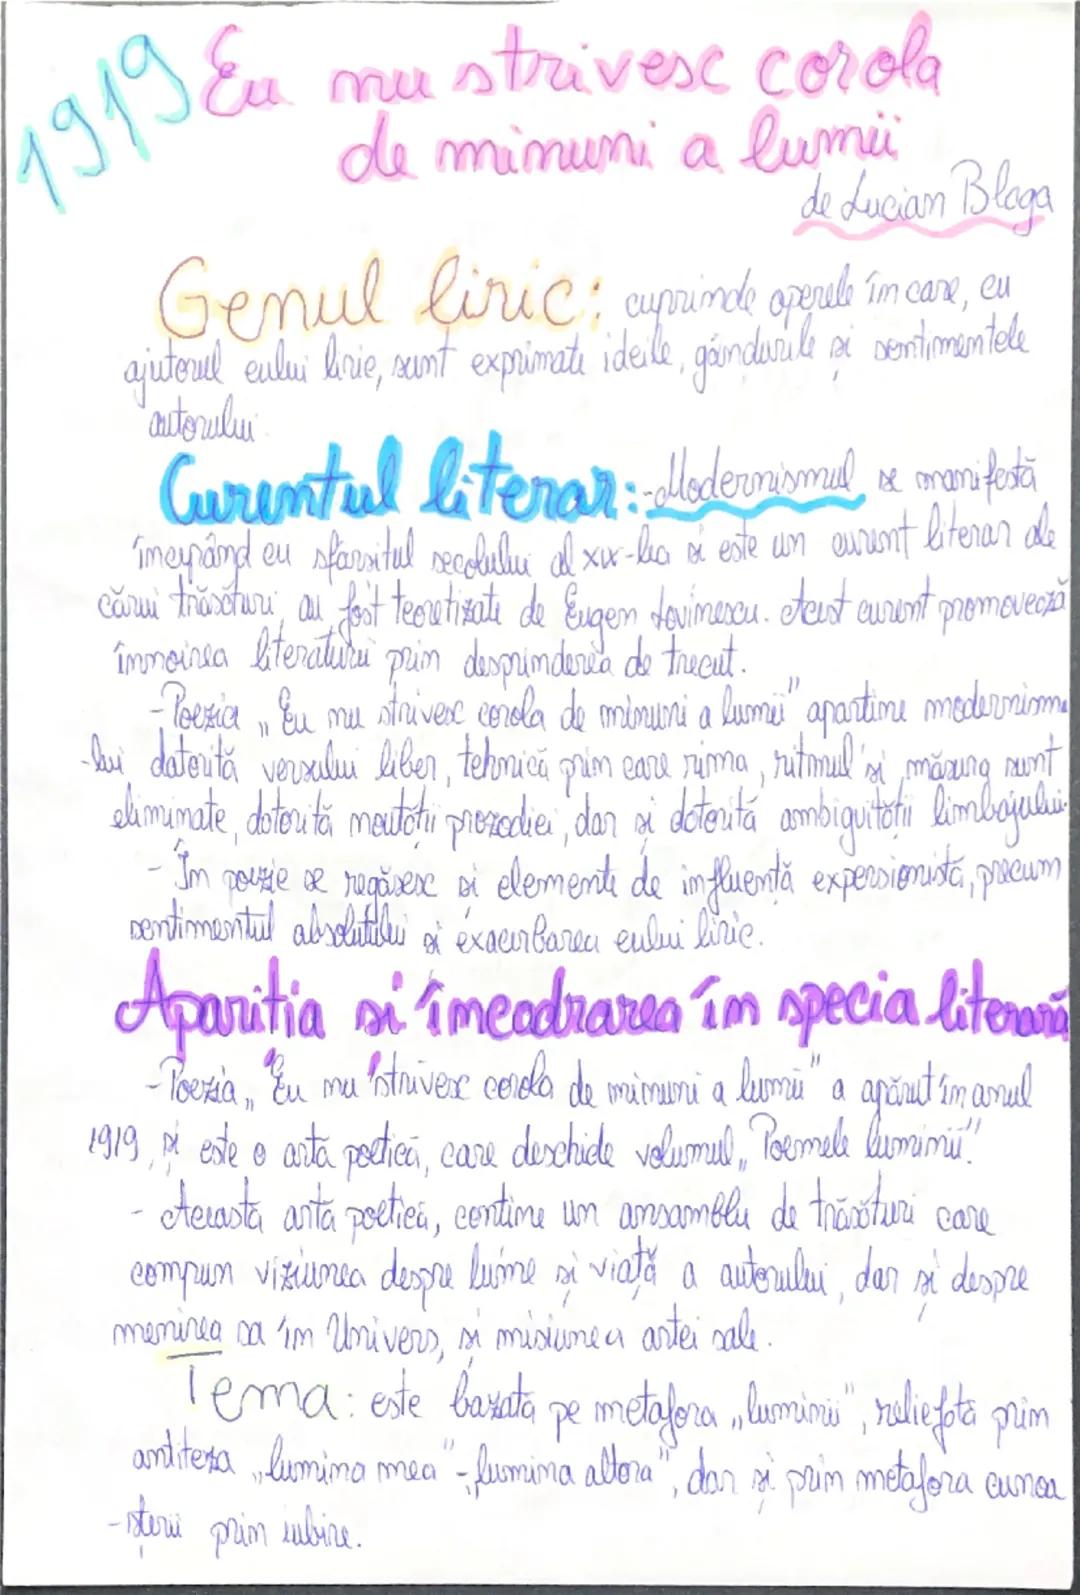 1919 Eu nu strivesc corola
de minuni a lumii
de Lucian Blaga
Genul liric: cuprinde operele în care, cu
ajutorul eului liric, sunt exprimate ideile, gândurile și sentimentele
autorului.
Curentul literar: -Modernismul se manifestă
începând cu sfârșitul secolului al XIX-lea și este un curent literar ale
cărui trăsături au fost teoretizate de Eugen Lovinescu. Acest curent promovează
înnoirea literaturii prin desprinderea de trecut.
-Poezia „Eu nu strivesc corola de minuni a lumii" aparține modernismu
-lui datorită versului liber, tehnică prin care rima, ritmul și măsura sunt
eliminate, datorită noutății prozodiei, dar și datorită ambiguității limbajului.
- În poezie se regăsesc și elemente de influență expersionistă, precum
sentimentul absolutului și exacerbarea eului liric.
Apariția și încadrarea în specia literară
-Poezia „Eu nu strivesc corola de minuni a lumii" a apărut în anul
1919, și este o artă poetică, care deschide volumul „Poemele luminii".
- Această artă poetică, conține un ansamblu de trăsături care
compun viziunea despre lume și viață a autorului, dar și despre
menirea sa în Univers, și misiunea artei sale.
Tema: este bazată pe metafora „luminii", reliefată prim
antiteza „lumina mea" - „lumina altora", dar și prin metafora cunoa
-șterii prin iubire.